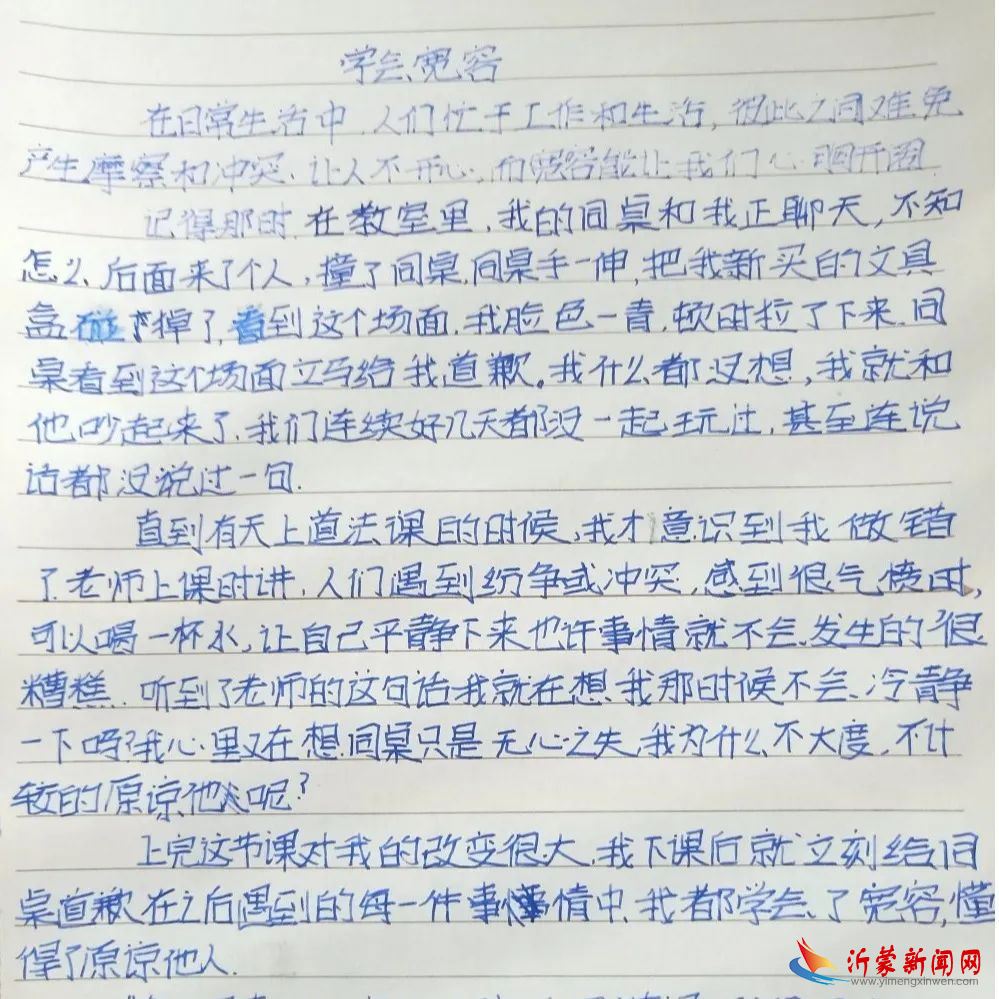 学会宽容
在日常生活中,人们忙于工作和生活,彼此之间难免
产生摩察和冲突.让人不开心,而宽容能让我们心胸开阔.
记得那时.在教室里,我的同桌和我正聊天,不知
怎么,后面来了个人,撞了同桌,同桌手一伸,把我新买的文具
盒碰掉了,看到这个场面.我脸色一青,顿时拉了下来.同
桌看到这个场面立马给我道歉。我什么都没想,我就和
他吵起来了.我们连续好几天都没一起玩过,甚至连说
话都没说过一句.
直到有天上道法课的时候,我才意识到我做错
了.老师上课时讲,人们遇到纷争或冲突,感到很气愤时,
可以喝一杯水,让自己平静下来也许事情就不会发生的很
糟糕.听到了老师的这句话我就在想.我那时候不会冷静
一下吗?我心里又在想.同桌只是无心之失,我为什么不大度,不计
较的原谅他人呢?
上完这节课对我的改变很大.我下课后就立刻给同
桌道歉在之后遇到的每一件事情中.我都学会了宽容,懂
得了原谅他人.
沂蒙新闻网
www.yimengxinwen.com